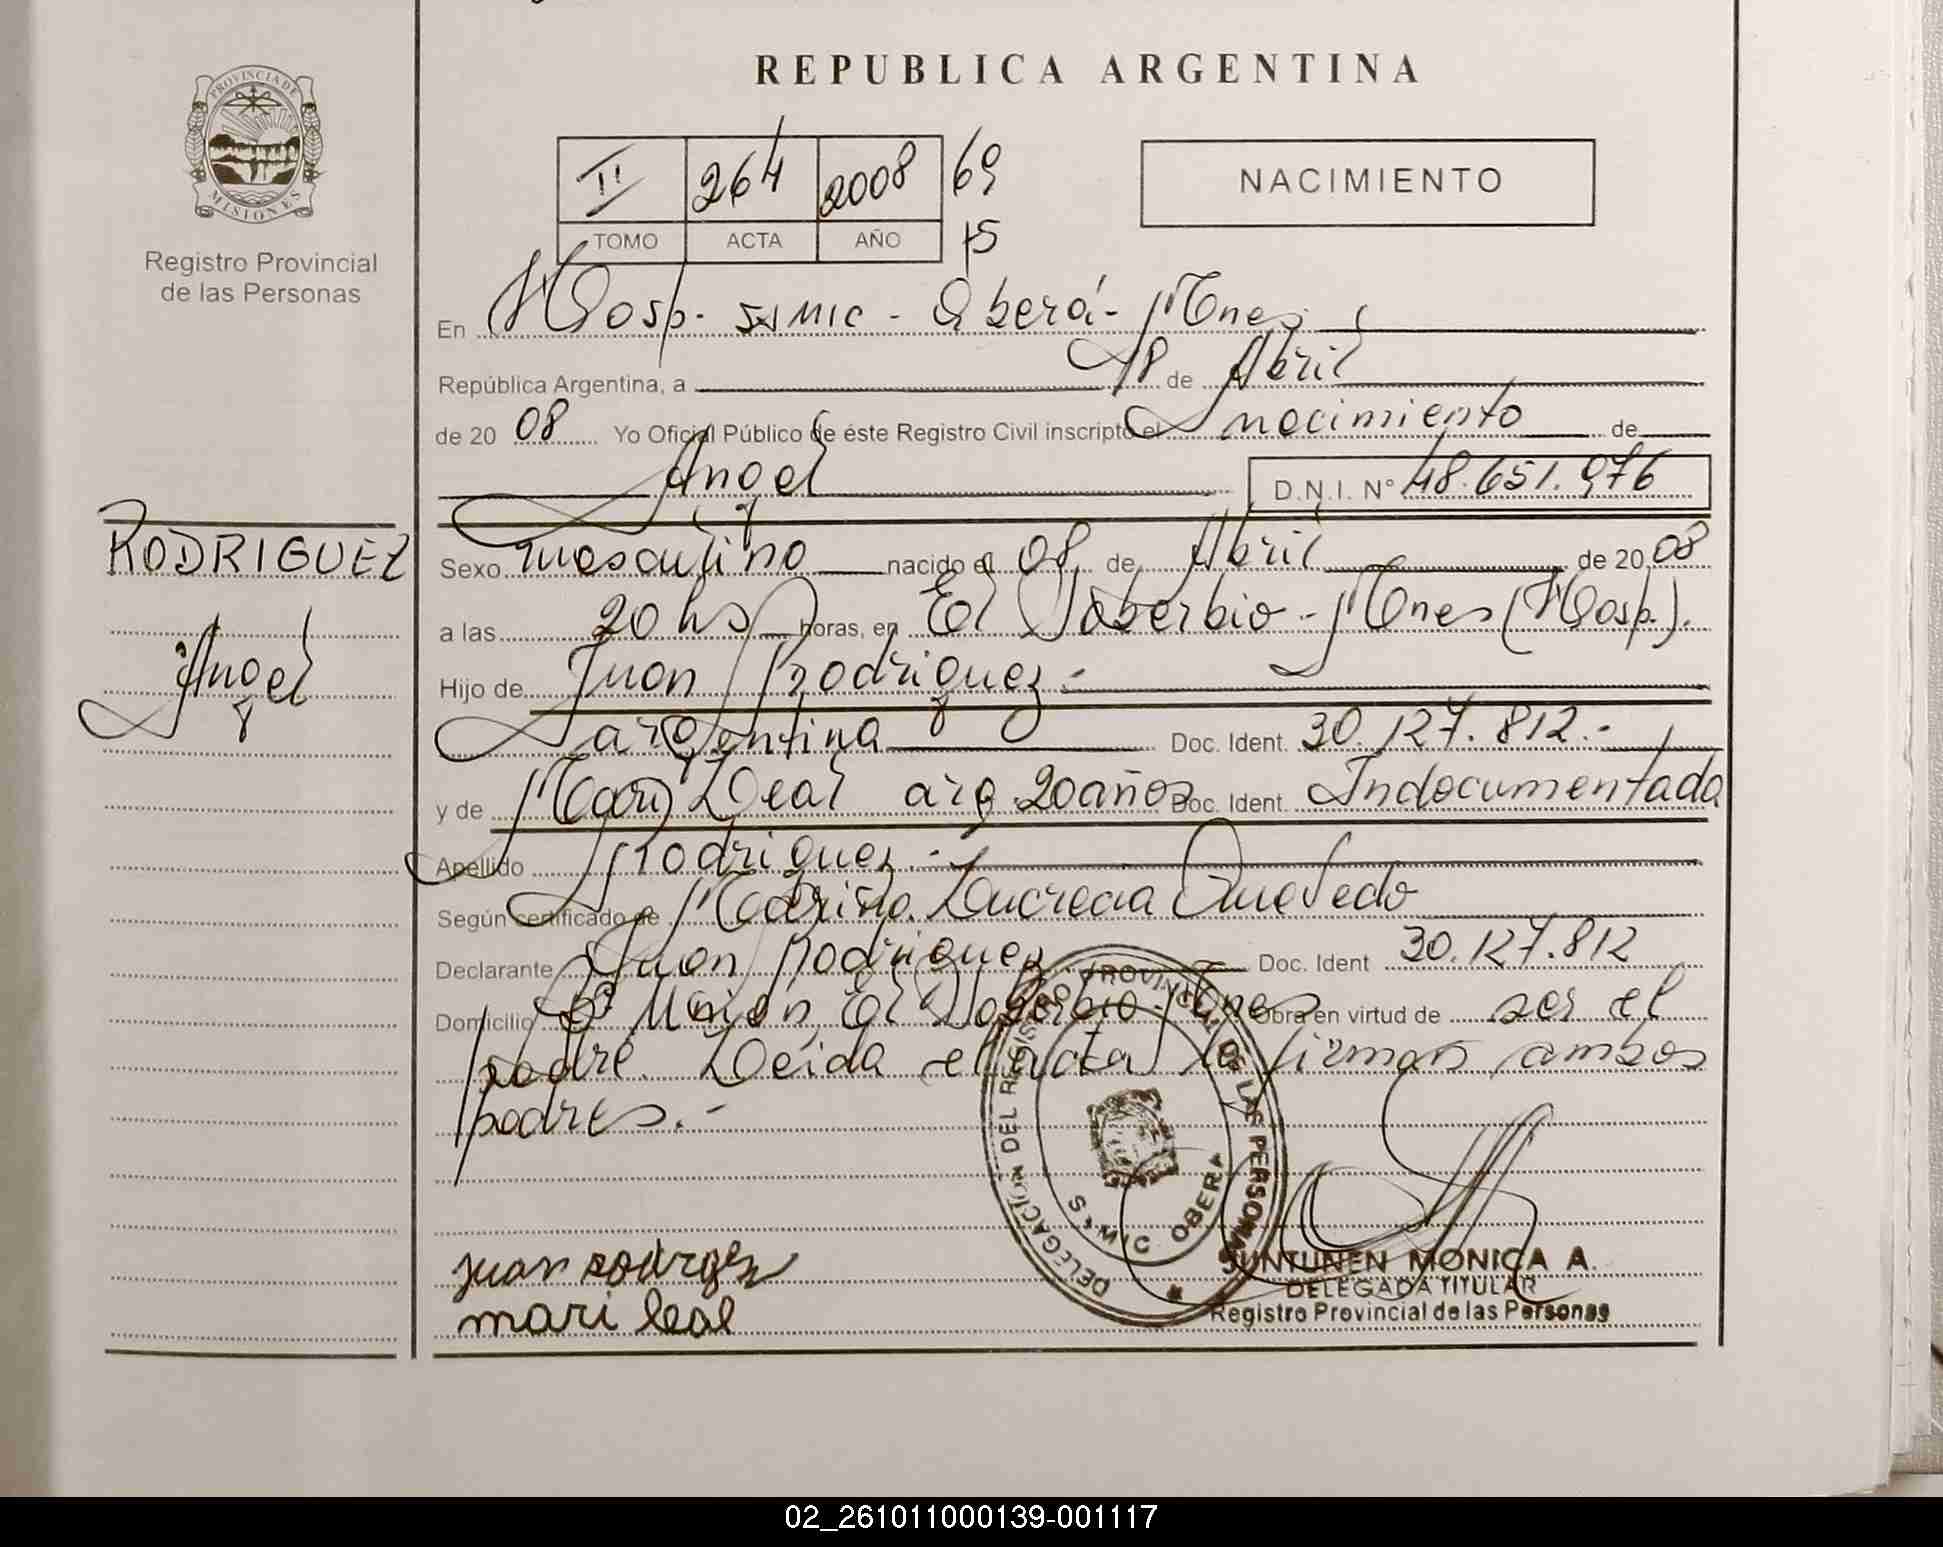 REPUBLICA ARGENTINA
PROVINCIA DE
MISIONES
Registro Provincial
de las Personas
II 264 2008 69
TOMO ACTA AÑO 15
NACIMIENTO
En Hosp. SAMIC - Oberá - Mnes
República Argentina, a 18 de Abril
de 2008 Yo Oficial Público de éste Registro Civil inscripto el nacimiento de
Angel D.N.I. N° 48.651.976
RODRIGUEZ
Angel
Sexo masculino nacido el 08 de Abril de 2008
a las 20 hs horas, en El Soberbio - Mnes (Hosp).
Hijo de Juan Rodriguez.-
argentina Doc. Ident. 30.127.812.-
y de Mari Leal arg. 20 años Doc. Ident. Indocumentada
Apellido Rodriguez.-
Según certificado de Lucrecia Quevedo
Declarante Juan Rodriguez Doc. Ident 30.127.812
Domicilio Unión, El Soberbio - Mnes Obra en virtud de ser el
padre. Leida el acta la firman ambos
padres.-
DELEGACIÓN DEL REGISTRO PROVINCIAL DE LAS PERSONAS
OBERA
juan rodrgez
mari leal
SUNTUNEN MONICA A.
DELEGADA TITULAR
Registro Provincial de las Personas
02_261011000139-001117